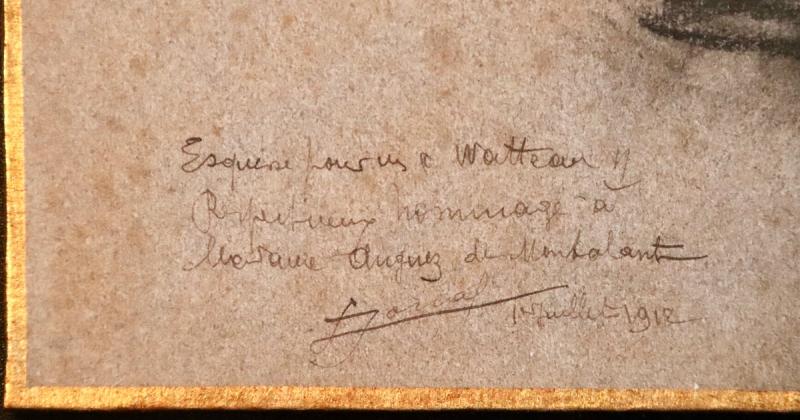 Esquisse pour un « Watteau »
Respectueux hommage à
Madame Auguez de Montalant
Juillet 1912